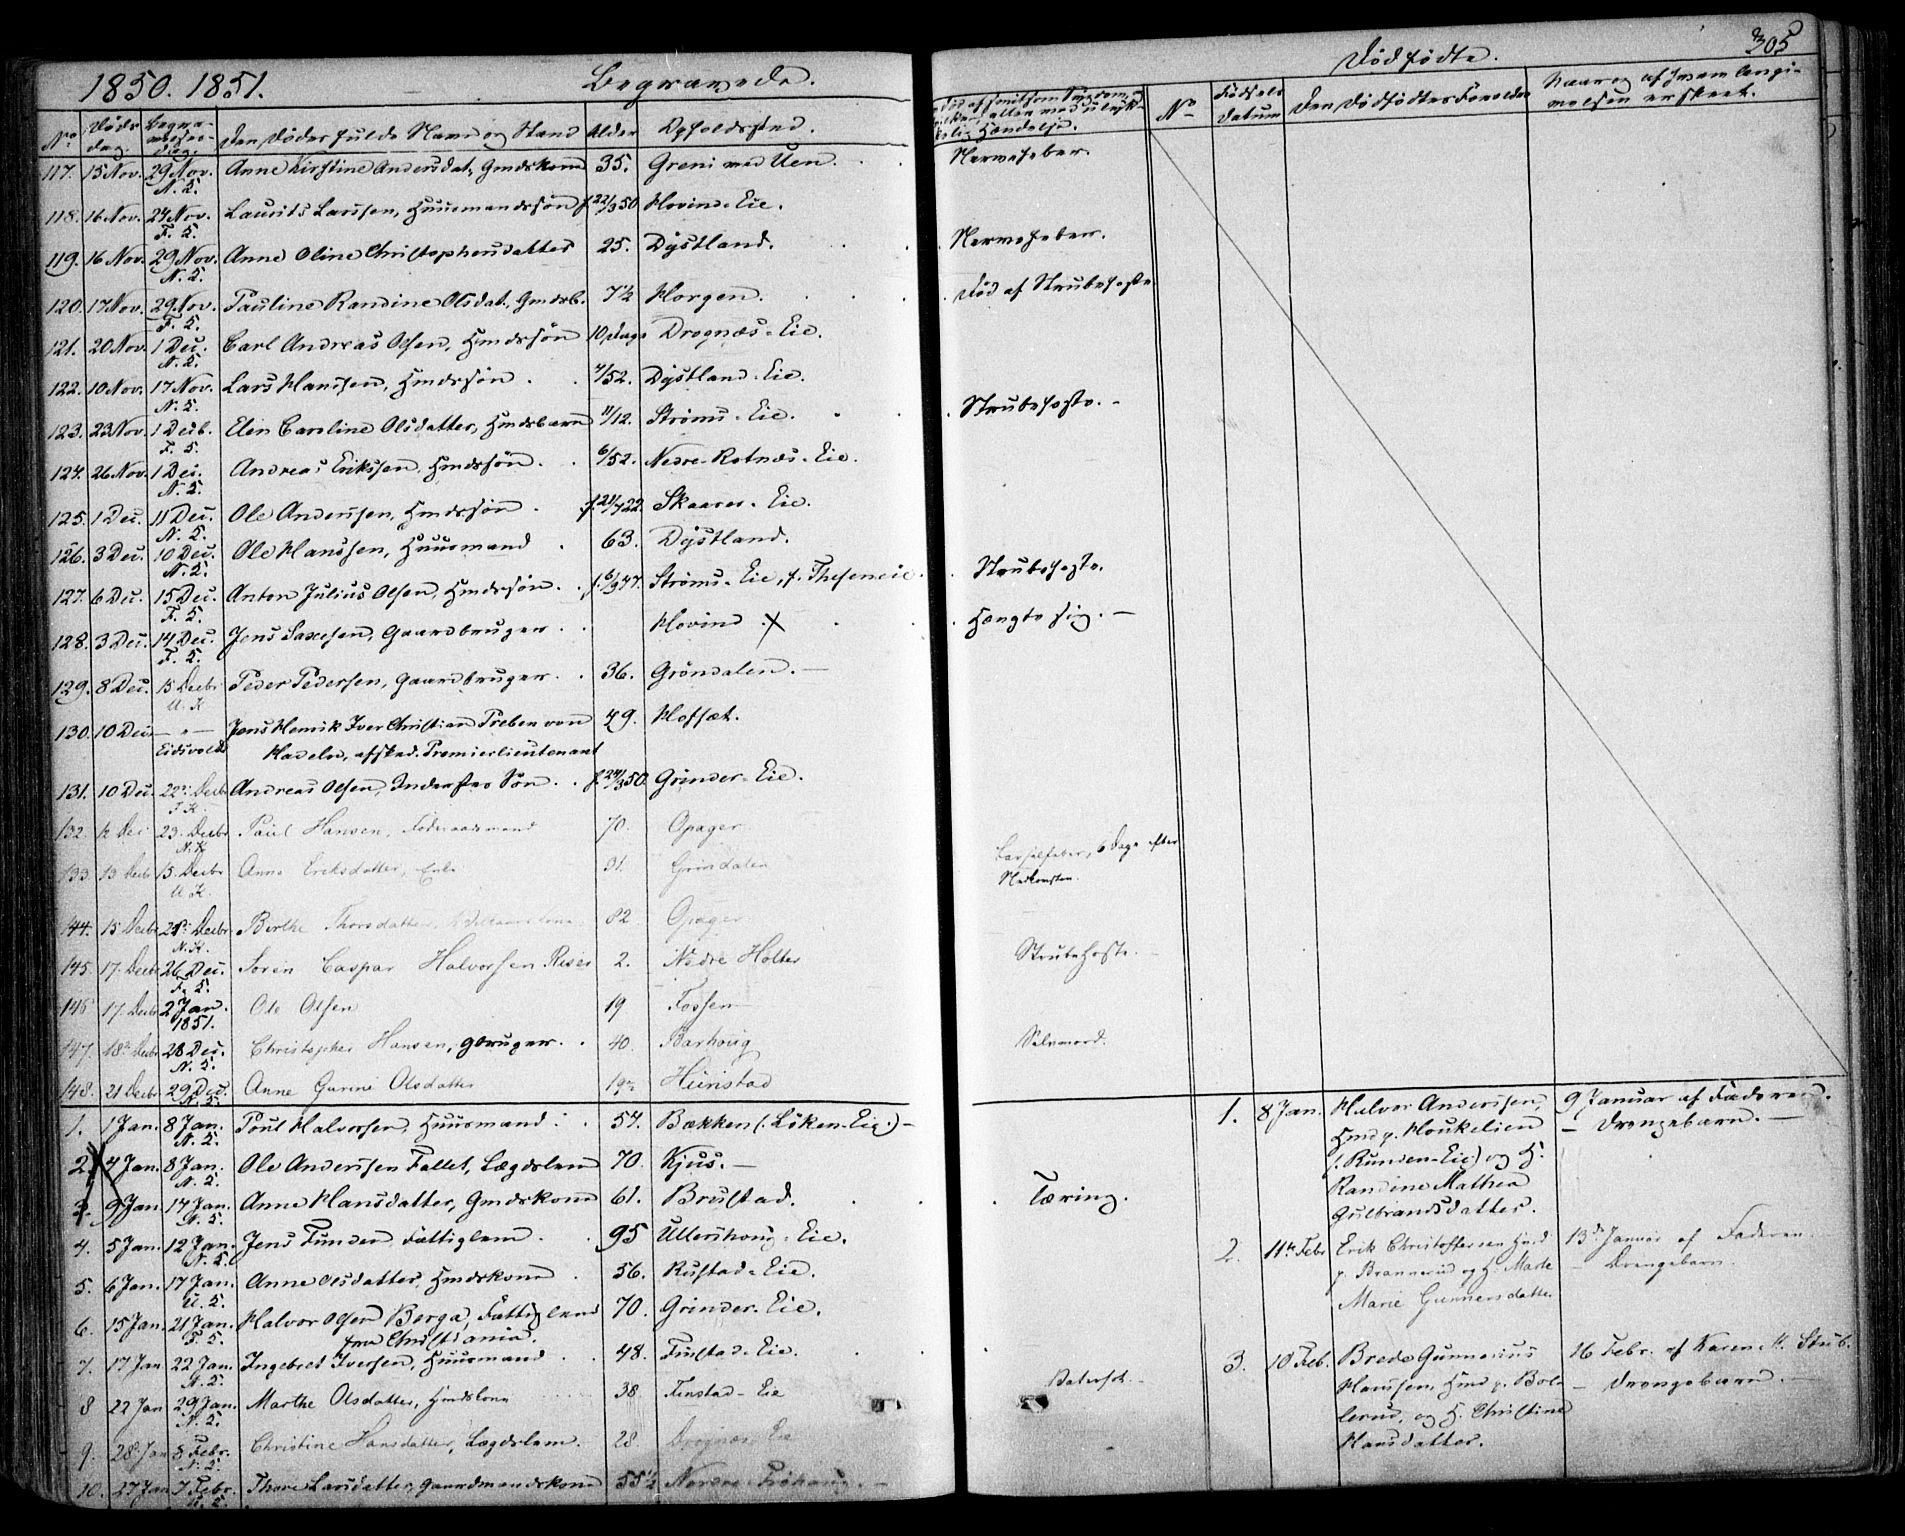 1850. 1851. Begravede.
No Døds dag. Begravelses dag. Den Dødes fulde Navn og Stand Alder Opholdssted.
117. 15 Nov. 29 Nov. Anne Kirstine Andersdat., Gmdskone 35. Greni med Uen.
N. K.
118. 16 Nov. 24 Nov. Laurits Larssen, Huusmandssøn f. 22/3 50 Hovind-Eie.
F. K.
119. 16 Nov. 29 Nov. Anne Oline Christophersdatter 25. Dystland.
N. K.
120. 17 Nov. 29 Nov. Pauline Randine Olsdat., Gmdsb. 7½ Horgen.
F. K.
121. 20 Nov. 1 Dec. Carl Andreas Olsen, Hmdssøn 10 Dage Drognæs-Eie.
N. K.
122. 10 Nov. 17 Nov. Lars Hanssen, Hmdssøn 4/52. Dystland-Eie.
N. K.
123. 23 Nov. 1 Decb. Elen Caroline Olsdatter, Hmdsbarn 11/12. Strøms-Eie.
F. K.
124. 26 Nov. 1 Dec. Andreas Erikssen, Hmdssøn. 6/52. Nedre-Rotnæs-Eie.
N. K.
125. 1 Dec. 11 Dec. Ole Anderssen, Hmdssøn f. 21/4 22. Skaarer-Eie.
N. K.
126. 3 Dec. 10 Dec. Ole Hanssen, Huusmand 63. Dystland.
N. K.
127. 6 Dec. 15 Dec. Anton Julius Olsen, Hmdssøn. f. 6/9 47. Strøms-Eie, f. Thesеneie.
F. K.
128. 3 Dec. 14 Dec. Jens Larssen, Gaardbruger Hovind X
F. K.
129. 8 Dec. 15 Decbr Peder Pedersen, Gaardbruger 36. Gröndalen.
U. K
130. 10 Dec — " — Jens Henrik Iver Christian Preben von 49. Hofsæt.
Eidsvold Hadeln, afsked. Premierlieutenant
131. 10 Dec. 22de Decbr Andreas Olsen, Inderstes Søn f. 24/3 50. Grinder-Eie.
F. K.
132. 12 Dec 23 Decbr Paul Hansen, Føderaadsmand 70. Opager
N. K
133. 13 Decbr 15. Decbr Anne Eriksdatter, Enke 31. Grindalen
U. K.
144. 15 Decbr 21de Decbr Birthe Thorsdatter, 82 Opager
N. K.
145. 17. Decbr 26 Dec. Soren Caspar Halvorsen Riser 2. Nedre Holter
F. K.
146 17. Decbr 2 Jan. Ole Olsen 19 Fossen
1851.
147. 18de Decbr 28 Dec. Christopher Hansen, gbruger. 40. Barhoug
N. K.
148. 21 Decbr 29 Dec. Anne Gurine Olsdatter 19 Heinstad
N. K.
1. 1 Jan. 8 Jan. Poul Halvorsen, Huusmand 54. Bækken (: Löken-Eie :)
N. K.
2. 4 Jan. 8 Jan. Ole Anderssen Fallet, Lægdslem 70. Kjus.
N. K.
3. 9 Jan 17 Jan. Anne Hansdatter, Gmdskone 61. Brustad.
N. K.
4. 5 Jan. 12 Jan. Jens Funder, Fattiglem 95 Ullershoug-Eie.
N. K.
5. 6 Jan. 17 Jan. Anne Olsdatter, Hmdskone 56. Rustad-Eie.
U. K.
6. 15 Jan. 21 Jan. Halvor Olsen Berga, Fattiglem 70. Grinder-Eie.
F. K. fra Christiania.
7. 17 Jan 22 Jan. Ingebret Iversen, Huusmand 48. Finstad-Eie.
N. K.
8 22 Jan 29 Jan. Marthe Olsdatter, Hmdskone 38. Finstad-Eie
N. K.
9. 28 Jan 8 Febr. Christine Hansdatter, Lægdslem. 28 Drognæs-Eie
N. K.
10. 27 Jan 7 Febr. Thore Larsdatter, Gaardmandskone 55½ Nordre-Fröhaug.
Dødfødte. 305
No Fødsels Datum Den Dødfødtes Forældre Naar og af hvem Angivelsen er skeet.
Nervefeber.
Nervefeber.
Død af Strubehoste
Strubehoste.
Strubehoste.
Hængte sig.
Barselfeber, 6 Dage efter
Nedkomsten.
Strubehoste.
Selvmord.
Tæring.
Vatersot.
1. 8 Jan. Halvor Anderssen, 9 Januar af Faderen.
Hmd p. Houkelien — Drengebarn. —
(: Runden-Eie:) og H.
Randine Mathea
Gulbrandsdatter.
2. 11te Febr Erik Christoffersen Hmd 13de Januar af Faderen
p. Brannerud og H. Marte — Drengebarn.
Marie Gunnersdatter
3. 10 Feb. Brede Gunnerius 16 Febr. af Karen M. Stub.
Hanssen, Hmd p. Bol- — Drengebarn. —
lerud, og H. Christine
Hansdatter.